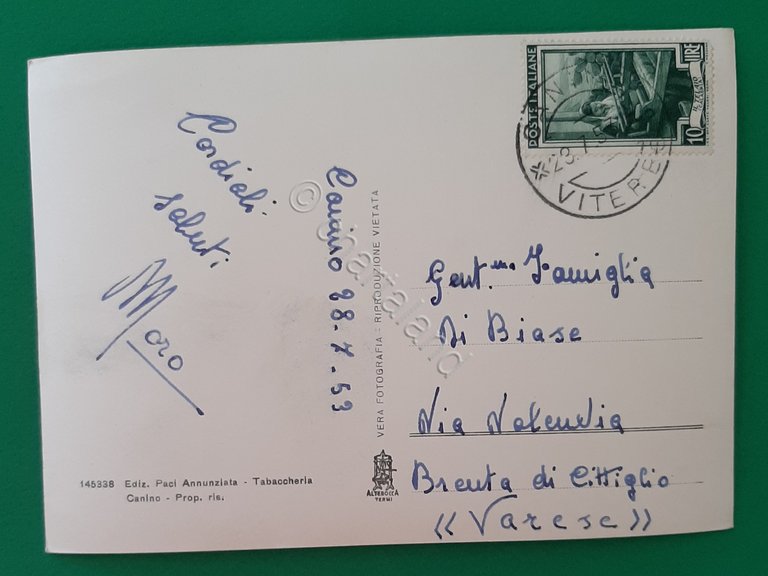 Cordiali
saluti
Moro
Canino 28.7.53
VERA FOTOGRAFIA - RIPRODUZIONE VIETATA
145338 Ediz. Paci Annunziata - Tabaccheria
Canino - Prop. ris.
ALTEROCCA
TERNI
POSTE ITALIANE
10 LIRE
28.7.5
VITERB
Gent.ma Famiglia
Di Biase
Via Valcuvia
Brenta di Cittiglio
<< Varese >>
© cartaland